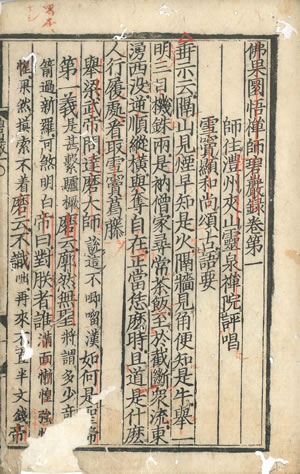 佛果圜悟禪師碧巖錄卷第一
師住澧州夾山靈泉禪院評唱
雪竇顯和尚頌古語要
垂示云隔山見煙早知是火隔牆見角便知是牛舉一
明三目機銖兩是衲僧家尋常茶飯至於截斷眾流東
湧西沒逆順縱橫與奪自在正當恁麼時且道是什麼
人行履處看取雪竇葛藤
舉梁武帝問達磨大師說這不唧嚠漢如何是聖諦
第一義是甚繫驢橛磨云廓然無聖將謂多少奇
箭過新羅可煞明白帝曰對朕者誰滿面慚惶強惺
惺果然摸索不着磨云不識咄再來半文錢帝